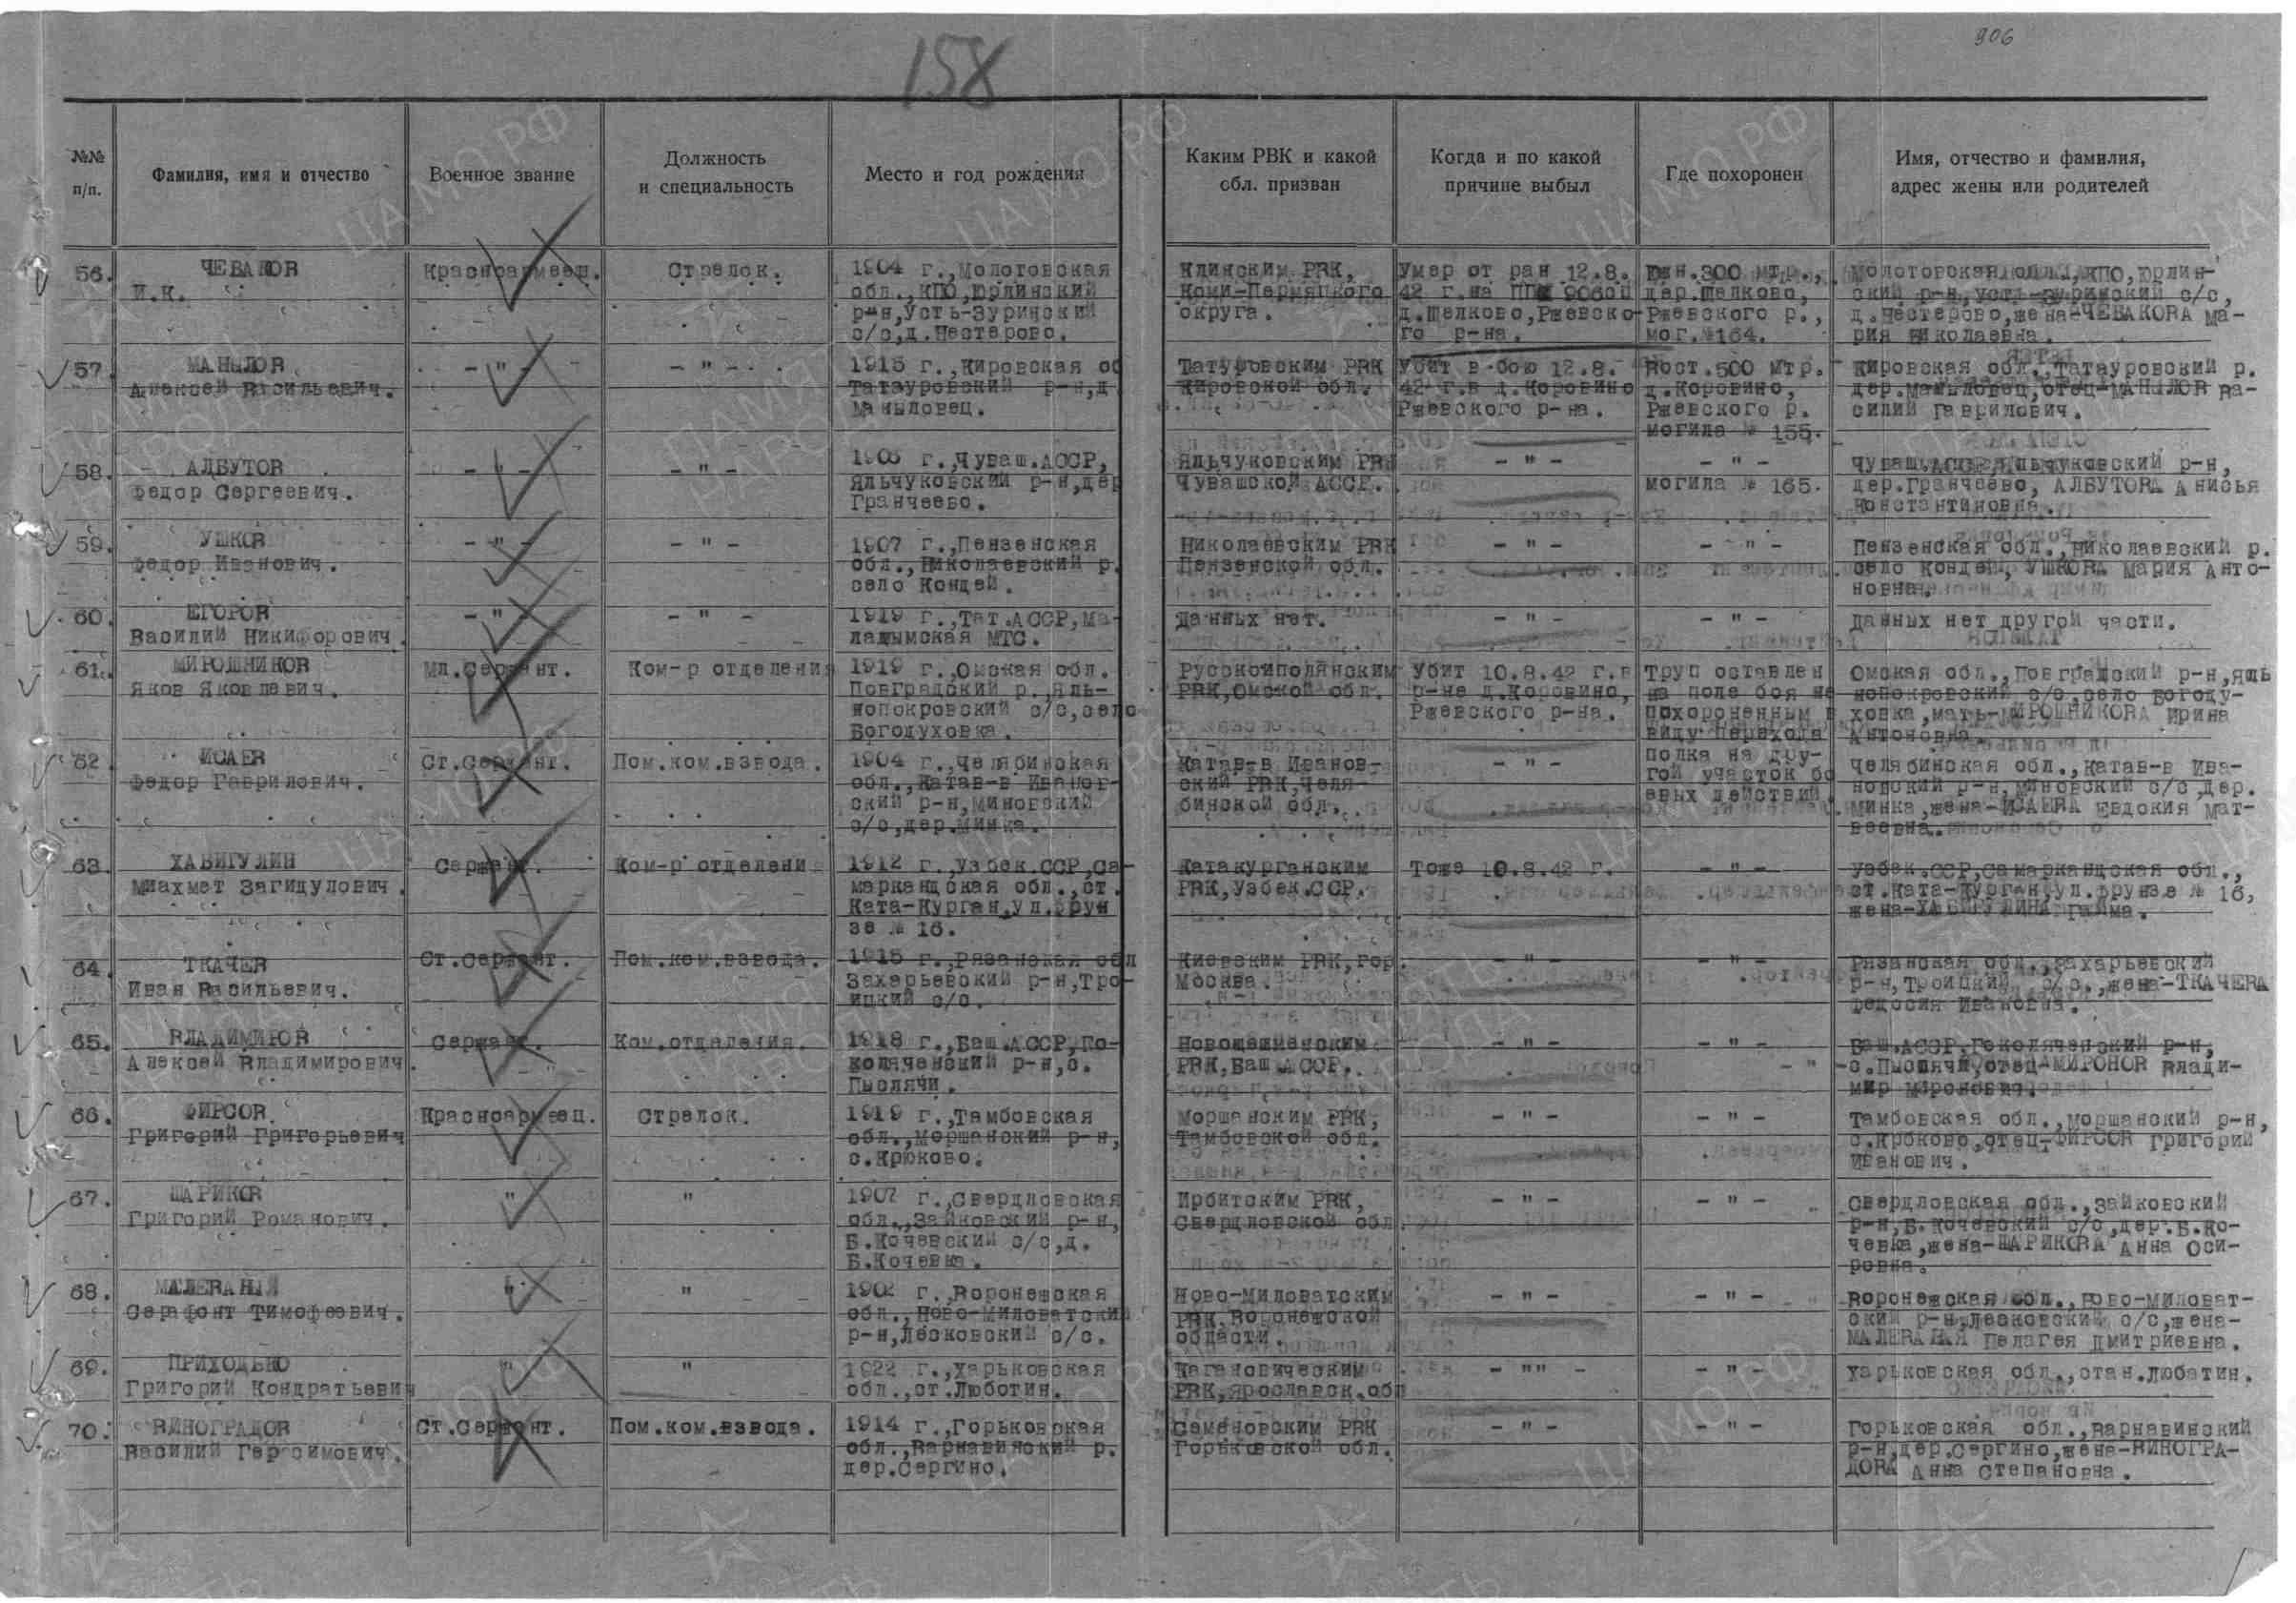 158
906
№№
п/п.
Фамилия, имя и отчество
Военное звание
Должность
и специальность
Место и год рождения
Каким РВК и какой
обл. призван
Когда и по какой
причине выбыл
Где похоронен
Имя, отчество и фамилия,
адрес жены или родителей
56.
ЧЕВАКОВ
И.К.
Красноармеец.
Стрелок.
1904 г.,Молотовская
обл.,КПО,Юрлинский
р-н,Усть-Зуринский
с/с,д.Нестерово.
РВК,
Коми-Пермяцкого
округа.
Умер от ран 12.8.
42 г.на ППГ
д.Щелково,Ржевско-
го р-на.
Юж.300 мтр.,
дер.Щелково,
Ржевского р.,
мог.№164.
Молотовская обл.,КПО,Юрлин-
ский р-н,Усть-Зуринский с/с,
д.Нестерово,жена-ЧЕВАКОВА Ма-
рия Николаевна.
57.
МАНЫЛОВ
Алексей Васильевич.
- " -
- " -
1915 г.,Кировская об
Татауровский р-н,д
Маныловец.
Татуровским РВК
Кировской обл.
Убит в бою 12.8.
42 г.в д.Коровино
Ржевского р-на.
Вост.500 мтр.
д.Коровино,
Ржевского р.
могила № 155.
Кировская обл.,Татауровский р.
дер.Маныловец,отец-МАНЫЛОВ Ва-
силий Гаврилович.
58.
АЛБУТОВ
Федор Сергеевич.
- " -
- " -
г.,Чуваш.АССР,
Яльчуковский р-н,дер
Гранчеево.
Яльчуковским РВК
Чувашской АССР.
- " -
- " -
могила № 165.
Чуваш.АССР,Яльчуковский р-н,
дер.Гранчеево, АЛБУТОВА Анисья
Константиновна.
59.
УШКОВ
Федор Иванович.
- " -
- " -
1907 г.,Пензенская
обл.,Николаевский р.
село Кондей.
Николаевским РВК
Пензенской обл.
- " -
- " -
Пензенская обл.,Николаевский р.
село Кондей, УШКОВА Мария Анто-
новна.
60.
ЕГОРОВ
Василий Никифорович.
- " -
- " -
1919 г.,Тат.АССР,Ма-
МТС.
Данных нет.
- " -
- " -
Данных нет другой части.
61.
МИРОШНИКОВ
Яков Яковлевич.
Мл.Сержант.
Ком-р отделения
1919 г.,Омская обл.
Повградский р.,Яль-
нопокровский с/с,село
Богодуховка.
Русскоиполянским
РВК,Омской обл.
Убит 10.8.42 г.в
р-не д.Коровино,
Ржевского р-на.
Труп оставлен
на поле боя не
похороненным в
виду перехода
полка на дру-
гой участок бо
евых действий
Омская обл.,Повградский р-н,яль
нопокровский с/с,село Богоду-
ховка,мать-МИРОШНИКОВА Ирина
Антоновна.
62
ИСАЕВ
Федор Гаврилович.
Ст.Сержант.
Пом.ком.взвода.
1904 г.,Челябинская
обл.,Катав-в Иванов-
ский р-н,Миновский
с/с,дер.Минка.
Катав-в Иванов-
ский РВК,Челя-
бинской обл.
- " -
Челябинская обл.,Катав-в Ива-
новский р-н,Миновский с/с дер.
Минка,жена-ИСАЕВА Евдокия Мат-
веевна.
63.
ХАБИГУЛИН
Миахмат Загидулович.
Сержант.
Ком-р отделени
1912 г.,Узбек.ССР,Са-
маркандская обл.,ст.
Ката-Курган,ул.Фрун
зе № 16.
Катакурганским
РВК,Узбек.ССР.
Тоже 10.8.42 г.
- " -
Узбек.ССР,Самаркандская обл.,
ст.Ката-Курган,ул.Фрунзе № 16,
жена-ХАБИГУЛИНА
64.
ТКАЧЕВ
Иван Васильевич.
Ст.Сержант.
Пом.ком.взвода.
1915 г.,Рязанская обл
Захарьевский р-н,Тро-
ицкий с/с.
Киевским РВК,гор.
Москва.
- " -
- " -
Рязанская обл.,Захарьевский
р-н,Троицкий с/с.,жена-ТКАЧЕВА
Федосия Ивановна.
65.
ВЛАДИМИРОВ
Алексей Владимирович.
Сержант.
Ком.отделения.
1918 г.,Баш.АССР,
р-н,с.
Пыслячи.
РВК,Баш.АССР.
- " -
- " -
Баш.АССР, р-н,
с.Пыслячи,отец-МИРОНОВ Влади-
мир Миронович.
66.
ФИРСОВ
Григорий Григорьевич
Красноармеец.
Стрелок.
1919 г.,Тамбовская
обл.,Моршанский р-н,
с.Крюково.
Моршанским РВК,
Тамбовской обл.
- " -
- " -
Тамбовская обл.,Моршанский р-н,
с.Крюково,отец-ФИРСОВ Григорий
Иванович.
67.
ШАРИКОВ
Григорий Романович.
"
"
1907 г.,Свердловская
обл.,Зайковский р-н,
Б.Кочевский с/с,д.
Б.Кочевка.
Ирбитским РВК,
Свердловской обл.
- " -
- " -
Свердловская обл.,Зайковский
р-н,Б.Кочевский с/с,дер.Б.Ко-
чевка,жена-ШАРИКОВА Анна Оси-
ровна.
68.
МАЛЕВАНЫЙ
Серафонт Тимофеевич.
"
"
1902 г.,Воронежская
обл.,Ново-Миловатский
р-н,Лесковский с/с.
Ново-Миловатским
РВК,Воронежской
области.
- " -
- " -
Воронежская обл.,Ново-Миловат-
ский р-н,Лесковский с/с,жена-
МАЛЕВАНАЯ Пелагея Дмитриевна.
69.
ПРИХОДЬКО
Григорий Кондратьевич
"
"
1922 г.,Харьковская
обл.,ст.Люботин.
Кагановическим
РВК,Ярославск.обл
- "" -
- " -
Харьковская обл.,стан.Любатин.
70.
ВИНОГРАДОВ
Василий Герасимович.
Ст.Сержант.
Пом.ком.взвода.
1914 г.,Горьковская
обл.,Варнавинский р.
дер.Сергино.
Семеновским РВК
Горьковской обл.
- " -
- " -
Горьковская обл.,Варнавинский
р-н,дер.Сергино,жена-ВИНОГРА-
ДОВА Анна Степановна.